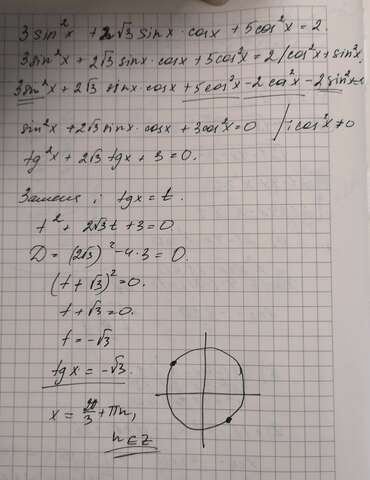 3sin²x + 2√3 sinx·cosx + 5cos²x = 2.
3sin²x + 2√3 sinx·cosx + 5cos²x = 2(cos²x + sin²x)
3sin²x + 2√3 sinx·cosx + 5cos²x - 2cos²x - 2sin²x = 0
sin²x + 2√3 sinx·cosx + 3cos²x = 0 /: cos²x ≠ 0
tg²x + 2√3 tgx + 3 = 0.
Замена: tgx = t.
t² + 2√3t + 3 = 0
D = (2√3)² - 4·3 = 0.
(t + √3)² = 0.
t + √3 = 0.
t = -√3
tgx = -√3.
x = /3 + πn,
n ∈ Z